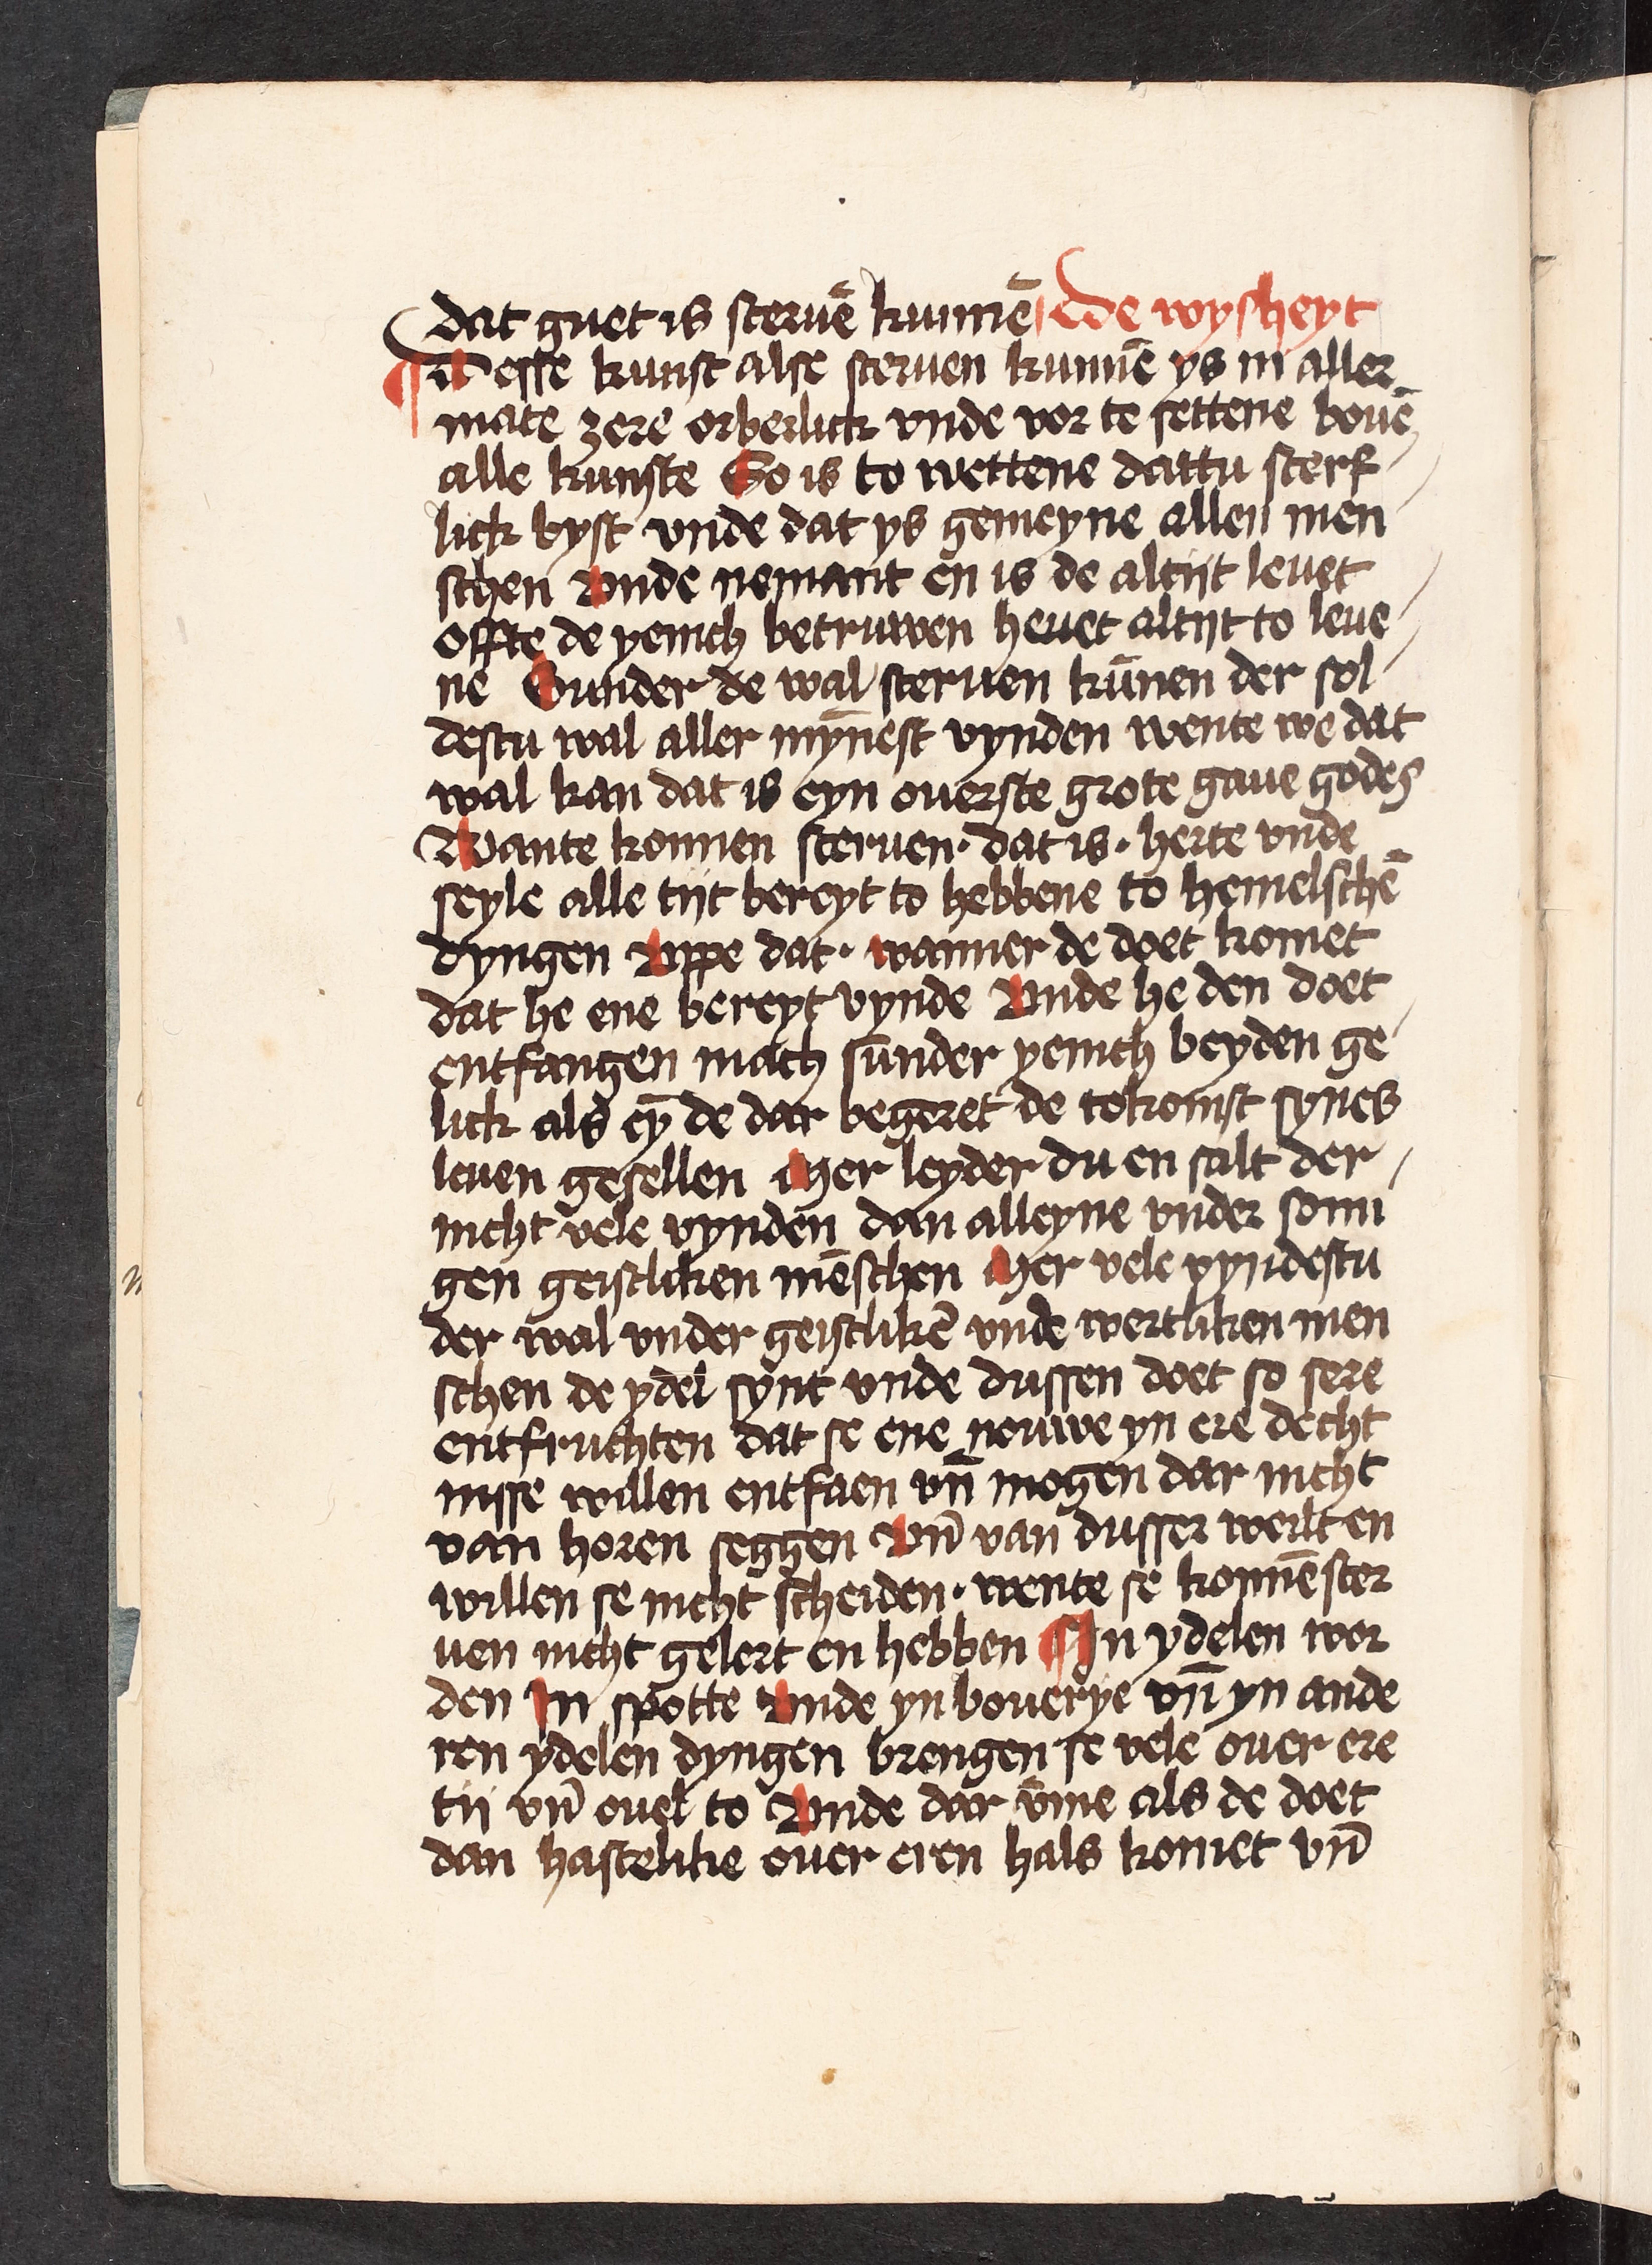 dat guet is steruē kunnē De wysheyt
¶ Desse kunst alse steruen kunnē ys in aller
mate zere orberlick vnde vor te settene bouē
alle kunste So is to wettene dattu sterf
lick byst vnde dat ys gemeyne allen men
schen Vnde nemant en is de altijt leuet
offte de yenich betruwen heuet altijt to leue
ne Sunder de wal steruen kūnen der sol
destu wal aller mȳnest vynden wente we dat
wal kan dat is eyn ouerste grote gaue godes
Wante konnen steruen · dat is · herte vnde
seyle alle tijt bereyt to hebbene to hemelschē
dyngen Vppe dat · wanner de doet komet
dat he ene bereyt vynde Vnde he den doet
entfangen mach sunder yenich beyden ge
lick als eȳ de dar begeret de tokomst synes
leuen gesellen Mer leyder du en salt der
nicht vele vynden dan alleyne vnder somi
gen geistliken mēschen Mer vele vyndestu
der wal vnder geistlikē vnde wertliken men
schen de ydel synt vnde dussen doet so sere
entfruchten dat se ene nouwe yn ere decht
nisse willen entfaen vn̄ mogen dar nicht
van horen seggen Vn̄ van dusser werlt en
willen se nicht scheiden · wente se konnē ster
uen nicht gelert en hebben ¶ In ydelen wor
den In spotte Vnde yn bouerye vn̄ yn ande
ren ydelen dyngen brengen se vele ouer ere
tij vn̄ ouel to Vnde dar v̄me als de doet
dan hastelike ouer eren hals komet vn̄